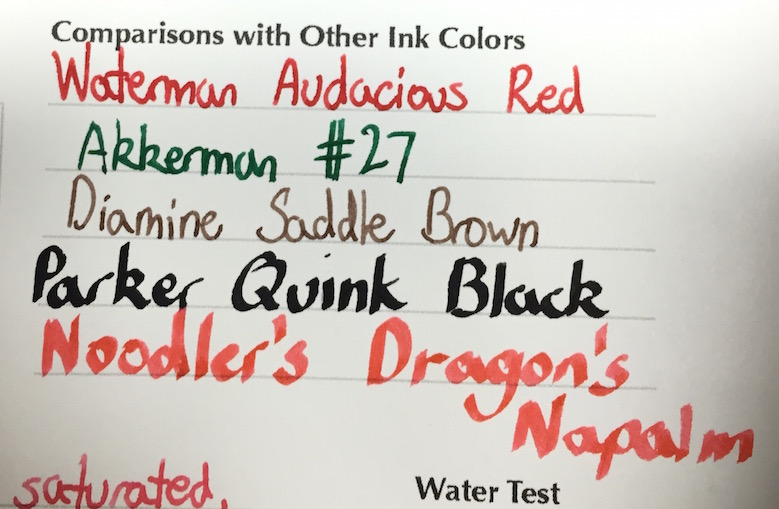 Comparisons with Other Ink Colors
Waterman Audacious Red
Akkerman #27
Diamine Saddle Brown
Parker Quink Black
Noodler's Dragon's
Napalm
saturated,
Water Test